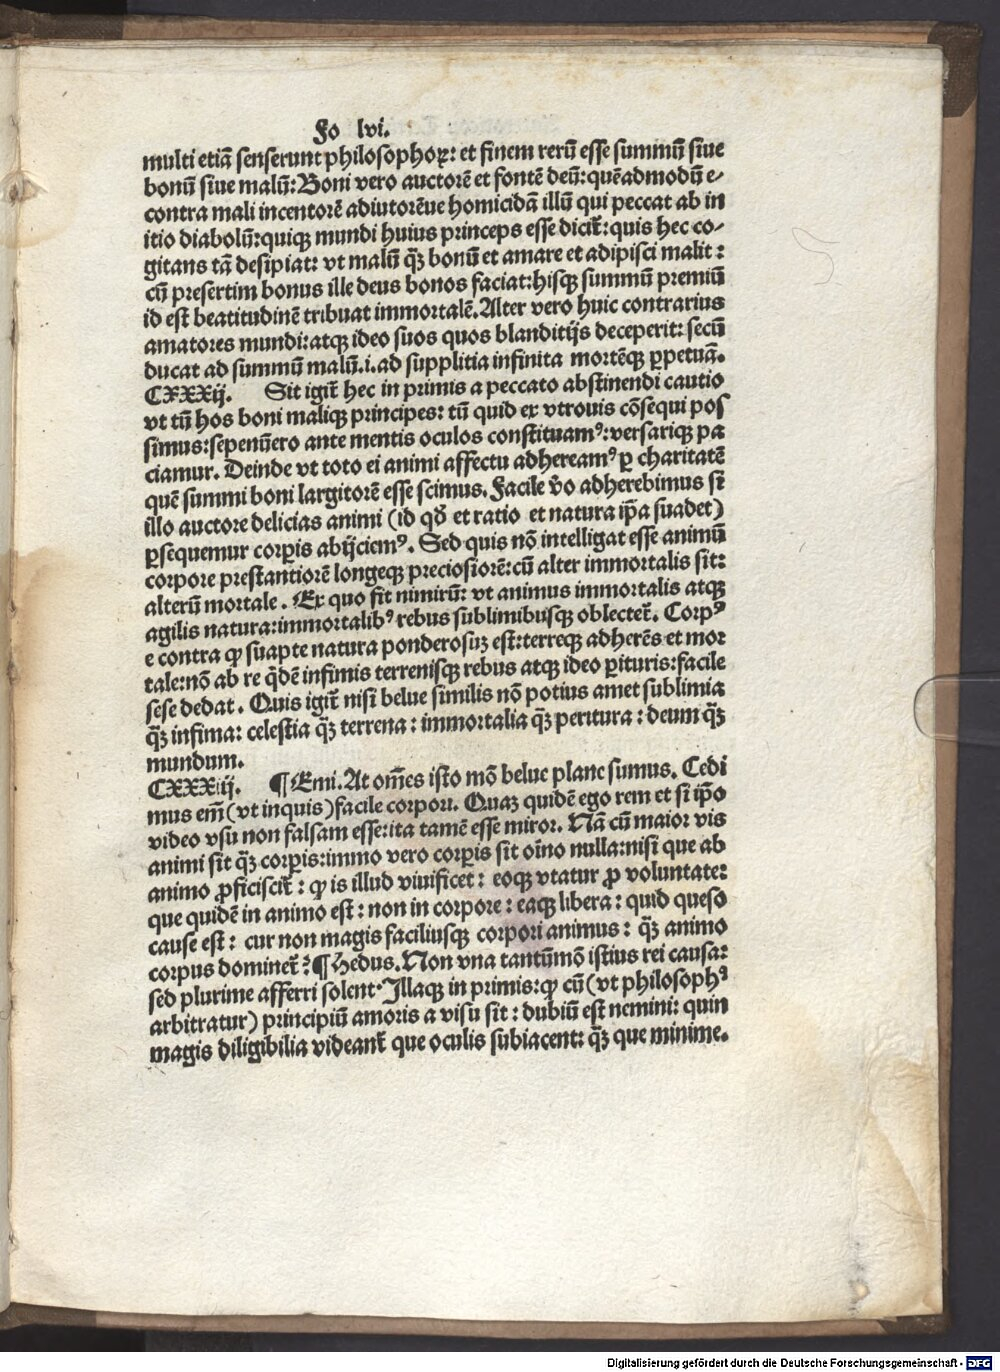 Fo lvi.
multi etiã senserunt philosophoꝝ: et finem rerũ esse summũ siue
bonũ siue malũ: Boni vero auctorẽ et fontẽ deũ: quẽadmodũ e⸗
contra mali incentorẽ adiutorẽue homicidã illũ qui peccat ab in
itio diabolũ: quiqꝫ mundi huius princeps esse dicit̃: quis hec co⸗
gitans tã desipiat: vt malũ q̃ꝫ bonũ et amare et adipisci malit:
cũ presertim bonus ille deus bonos faciat: hisqꝫ summũ premiũ
id est beatitudinẽ tribuat immortalẽ. Alter vero huic contrarius
amatores mundi: atqꝫ ideo suos quos blanditijs deceperit: secũ
ducat ad summũ malũ .i. ad supplitia infinita mortẽqꝫ ꝑpetuã.
CXXXij. Sit igit̃ hec in primis a peccato abstinendi cautio
vt tũ hos boni maliqꝫ principes: tũ quid ex vtrouis cõsequi pos
simus: sepenũero ante mentis oculos constituamꝰ: versariqꝫ pa
ciamur. Deinde vt toto ei animi affectu adhereamꝰ ꝑ charitatẽ
quẽ summi boni largitorẽ esse scimus. Facile v̉o adherebimus si
illo auctore delicias animi (id qď et ratio et natura ip̃a suadet)
ꝑsequemur corꝑis abijciemꝰ. Sed quis nõ intelligat esse animũ
corpore prestantiorẽ longeqꝫ preciosiorẽ: cũ alter immortalis sit:
alterũ mortale. Ex quo fit nimirũ: vt animus immortalis atqꝫ
agilis natura: immortalibꝰ rebus sublimibusqꝫ oblectet̃. Corpꝰ
e contra ꝙ suapte natura ponderosuꝫ est: terreqꝫ adherẽs et mor
tale: nõ ab re q̃dẽ infimis terrenisqꝫ rebus atqꝫ ideo ꝑituris: facile
sese dedat. Quis igit̃ nisi belue similis nõ potius amet sublimia
q̃ꝫ infima: celestia q̃ꝫ terrena: immortalia q̃ꝫ peritura: deum q̃ꝫ
mundum.
CXXXiij. ¶ Emi. At om̃es isto mõ belue plane sumus. Cedi
mus em̃ (vt inquis) facile corpori. Quaꝫ quidẽ ego rem et si ip̃o
video vsu non falsam esse: ita tamẽ esse miror. Nã cũ maior vis
animi sit q̃ꝫ corꝑis: immo vero corꝑis sit oĩno nulla: nisi que ab
animo ꝓficiscit̃: ꝙ is illud viuificet: eoqꝫ vtatur ꝓ voluntate:
que quidẽ in animo est: non in corpore: eaqꝫ libera: quid queso
cause est: cur non magis faciliusqꝫ corpori animus: q̃ꝫ animo
corpus dominet̃? ¶ Hedus. Non vna tantũmõ istius rei causa:
sed plurime afferri solent. Illaqꝫ in primis: ꝙ cũ (vt philosophꝰ
arbitratur) principiũ amoris a visu sit: dubiũ est nemini: quin
magis diligibilia videant̃ que oculis subiacent: q̃ꝫ que minime.
Digitalisierung gefördert durch die Deutsche Forschungsgemeinschaft - DFG